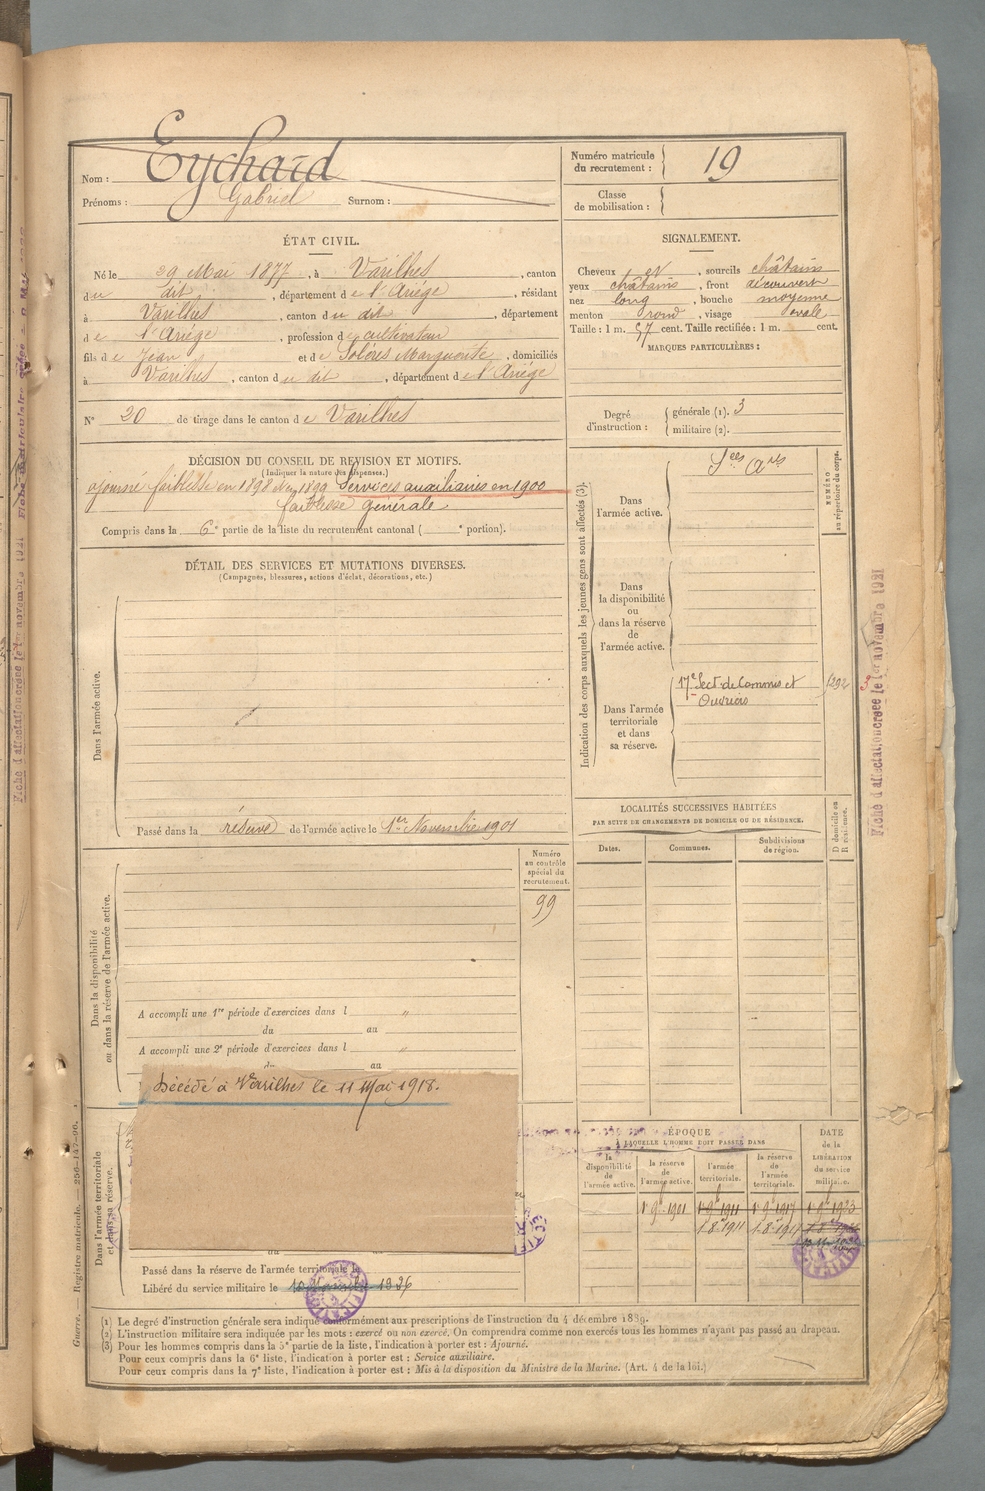 Nom : Eychard
Prénoms : Gabriel Surnom :
Numéro matricule du recrutement : 19
Classe de mobilisation :
ÉTAT CIVIL.
Né le 29 Mai 1877, à Varilhes, canton
du dit, département de l'Ariége, résidant
à Varilhes, canton du dit, département
de l'Ariége, profession de cultivateur
fils de Jean et de Soléres Marguerite, domiciliés
à Varilhes, canton du dit, département de l'Ariége
N° 20 de tirage dans le canton de Varilhes
SIGNALEMENT.
Cheveux et, sourcils châtains
yeux châtains, front découvert
nez long, bouche moyenne
menton rond, visage ovale
Taille : 1 m. 57 cent. Taille rectifiée : 1 m. cent.
MARQUES PARTICULIÈRES :
Degré d'instruction : générale (1). 3
militaire (2).
DÉCISION DU CONSEIL DE REVISION ET MOTIFS.
(Indiquer la nature des dispenses.)
ajourné faiblesse en 1898 1899 Services auxiliaires en 1900
faiblesse générale
Compris dans la 6e partie de la liste du recrutement cantonal ( e portion).
DÉTAIL DES SERVICES ET MUTATIONS DIVERSES.
(Campagnes, blessures, actions d'éclat, décorations, etc.)
Dans l'armée active.
Passé dans la réserve de l'armée active le 1er Novembre 1901
Indication des corps auxquels les jeunes gens sont affectés (3).
NUMÉRO au répertoire du corps.
Dans l'armée active.
Dans la disponibilité ou dans la réserve de l'armée active.
Dans l'armée territoriale et dans sa réserve.
17e Sect. de Commis et
Ouvriers
1292
Fiche d'affectation créée le 1er novembre 1921
LOCALITÉS SUCCESSIVES HABITÉES
PAR SUITE DE CHANGEMENTS DE DOMICILE OU DE RÉSIDENCE.
D domicile ou R résidence.
Dates. Communes. Subdivisions de région.
Dans la disponibilité ou dans la réserve de l'armée active.
Numéro au contrôle spécial du recrutement.
99
A accompli une 1re période d'exercices dans l "
du au
A accompli une 2e période d'exercices dans l "
au
Décédé à Varilhes le 11 Mai 1918.
Dans l'armée territoriale et dans sa réserve.
Passé dans la réserve de l'armée territoriale le
Libéré du service militaire le 1926
ÉPOQUE
À LAQUELLE L'HOMME DOIT PASSER DANS
DATE de la LIBÉRATION du service militaire.
la disponibilité de l'armée active. la réserve de l'armée active. l'armée territoriale. la réserve de l'armée territoriale.
1 9bre 1901 1 9bre 1911 1 9bre 1917 1 9bre 1923
1 8bre 1911 1 8bre 1917
Guerre. — Registre matricule. — 250-147-96.
(1) Le degré d'instruction générale sera indiqué conformément aux prescriptions de l'instruction du 4 décembre 1889.
(2) L'instruction militaire sera indiquée par les mots : exercé ou non exercé. On comprendra comme non exercés tous les hommes n'ayant pas passé au drapeau.
(3) Pour les hommes compris dans la 5e partie de la liste, l'indication à porter est : Ajourné.
Pour ceux compris dans la 6e liste, l'indication à porter est : Service auxiliaire.
Pour ceux compris dans la 7e liste, l'indication à porter est : Mis à la disposition du Ministre de la Marine. (Art. 4 de la loi.)